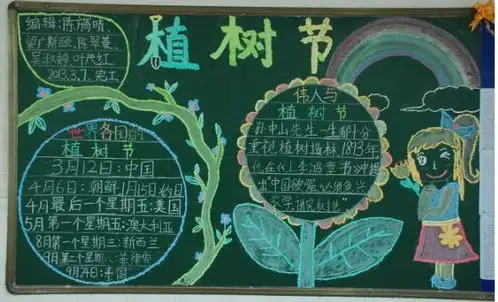 植树节
编辑:陈旖晴、
2013.3.7. 完工
世界各国的
植树节
3月12日:中国
4月6日:朝鲜1月15日:约旦
4月最后一个星期五:美国
5月第一个星期五:澳大利亚
8月第一个星期三:新西兰
9月第二个星期六:菲律宾
9月24日:泰国
伟人与
植树节
孙中山先生一生都十分
重视植树造林1893年
他在《上李鸿章书》中提
出"中国欲强必须急兴
农学讲究树艺"